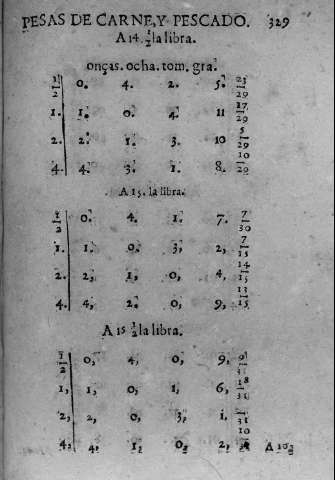 PESAS DE CARNE, Y PESCADO. 329
A 14. 1/2 la libra.
onças. ocha. tom. gra.
1/2 0. 4. 2. 5. 23/29
1. 1. 0. 4. 11 17/29
2. 2. 1. 3. 10 5/29
4. 4. 3. 1. 8. 10/29
A 15. la libra.
1/2 0. 4. 1. 7. 7/30
1. 1. 0. 3, 2, 7/15
2. 2, 1, 0, 4, 14/15
4. 4, 2. 0, 9, 13/15
A 15 1/2 la libra.
1/2 0, 4, 0, 9, 9/31
1, 1, 0, 1, 6, 18/31
2, 2, 0, 3, 1.
4, 4, 1, 0, 2,